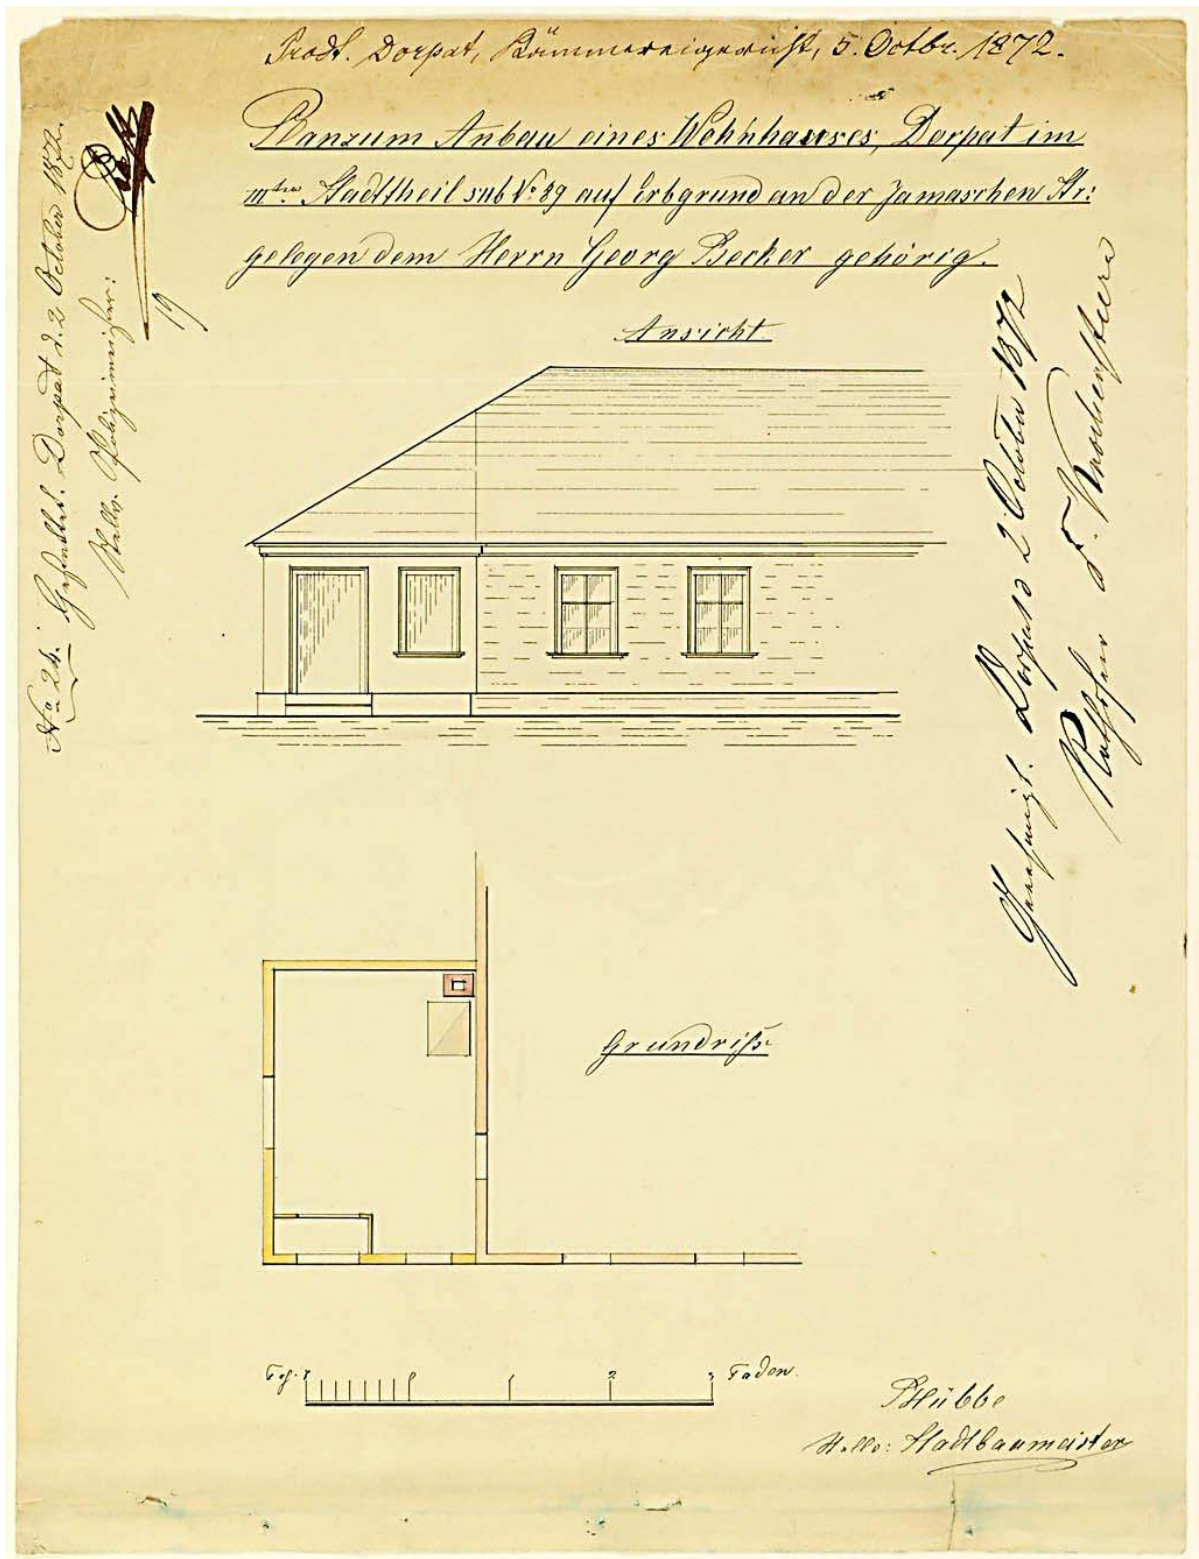 Prodt. Dorpat, Kämmereigericht, 5. Octbr. 1872.
Plan zum Anbau eines Wohnhauses, Dorpat im
III ten Stadttheil sub No 89 auf Erbgrund an der Jamaschen Str:
gelegen dem Herrn Georg Becker gehörig.
Ansicht.
No 24. Gesehen. Dorpat d. 2 October 1872.
Stellv. Polizeimeister:
19
Genehmigt. Dorpat d 2 October 1872
Rathsherr
Grundriß.
Fuß. 7 0 1 2 3 Faden.
PHübbe
Stellv: Stadtbaumeister